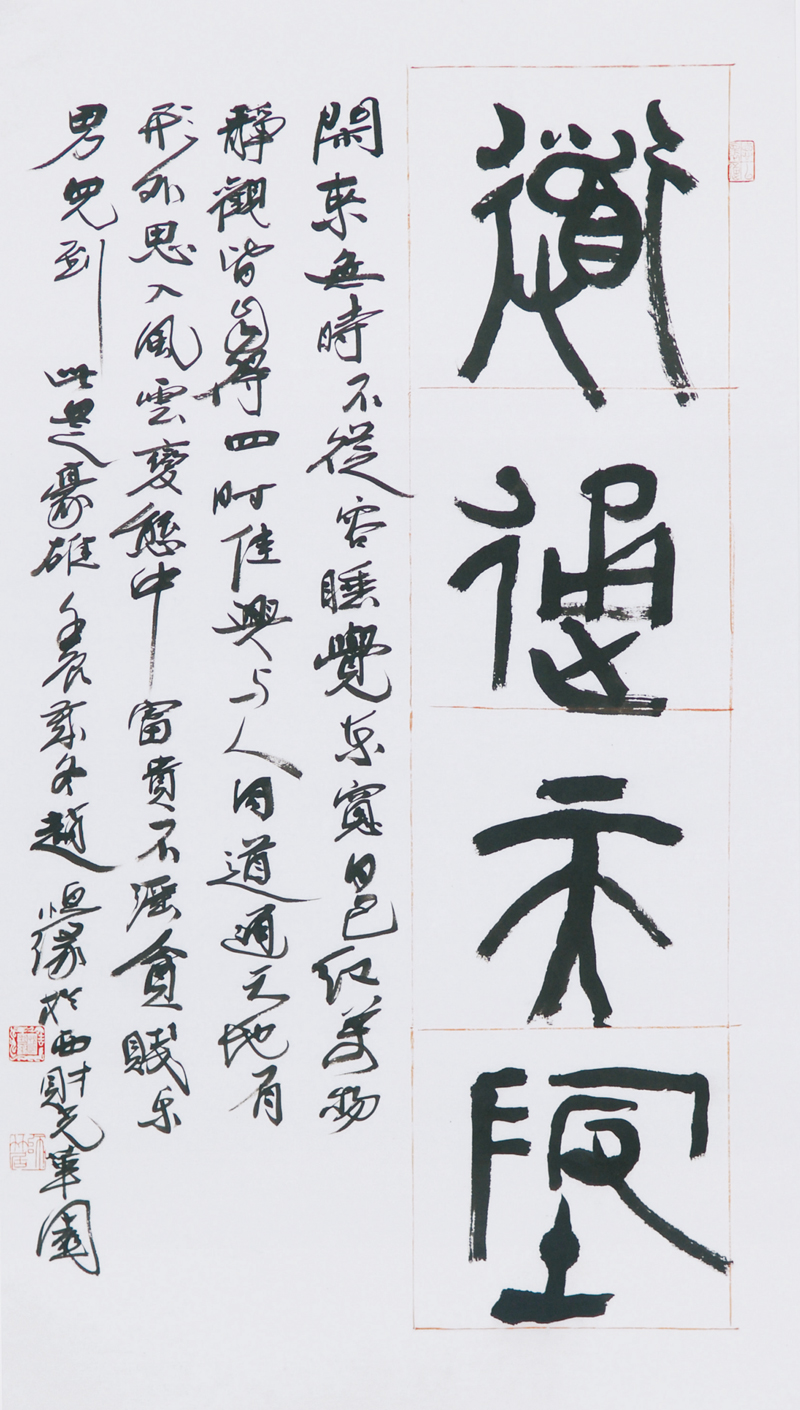 道
通
天
地
閑來無時不從容睡覺东窓日已红萬物
靜觀皆自得四时佳興与人同道通天地有
形外思入風雲變態中富貴不淫貧賤乐
男兒到此是豪雄壬辰冬越恒缘於西財光華園